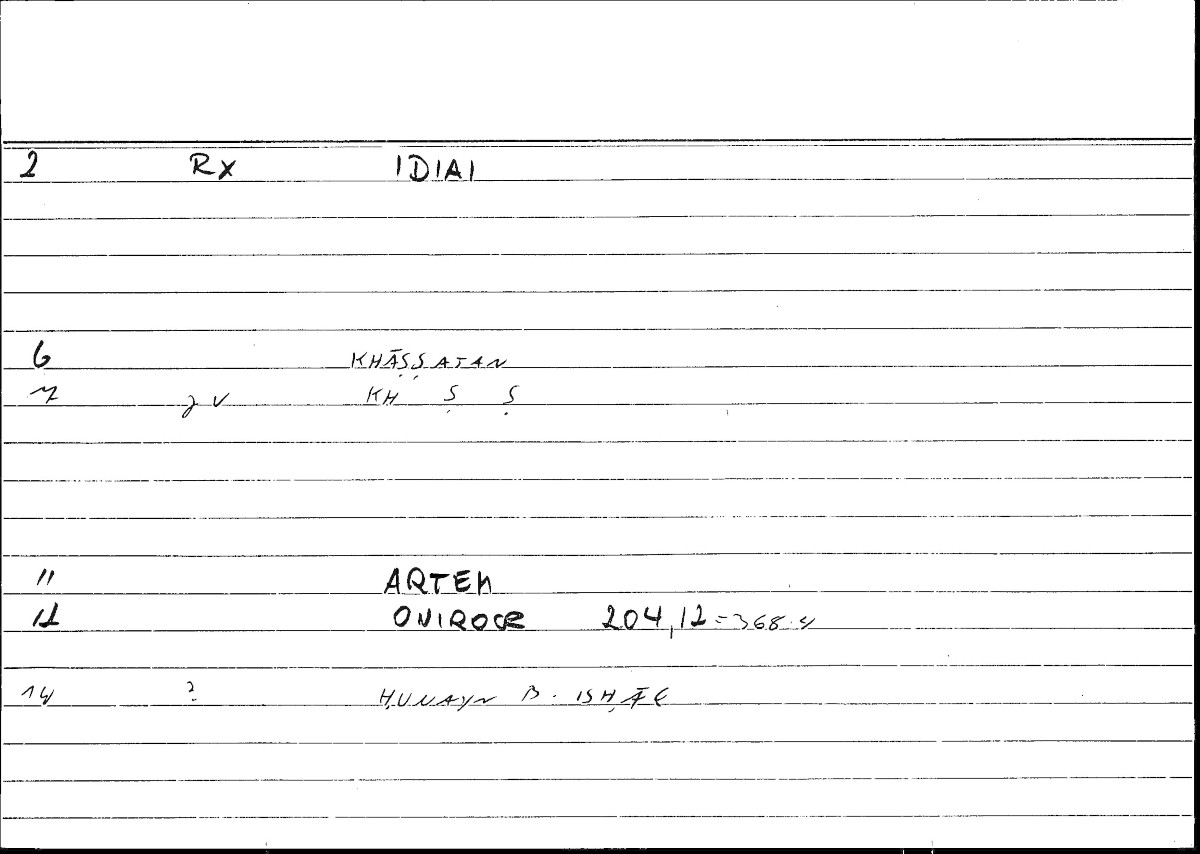 2 Rx IDIAI
6 KHĀṢṢATAN
7 KH Ṣ Ṣ
11 ARTEM
12 ONIROCR 204,12=368.4
14 ? ḤUNAYN B. ISḤĀḲ